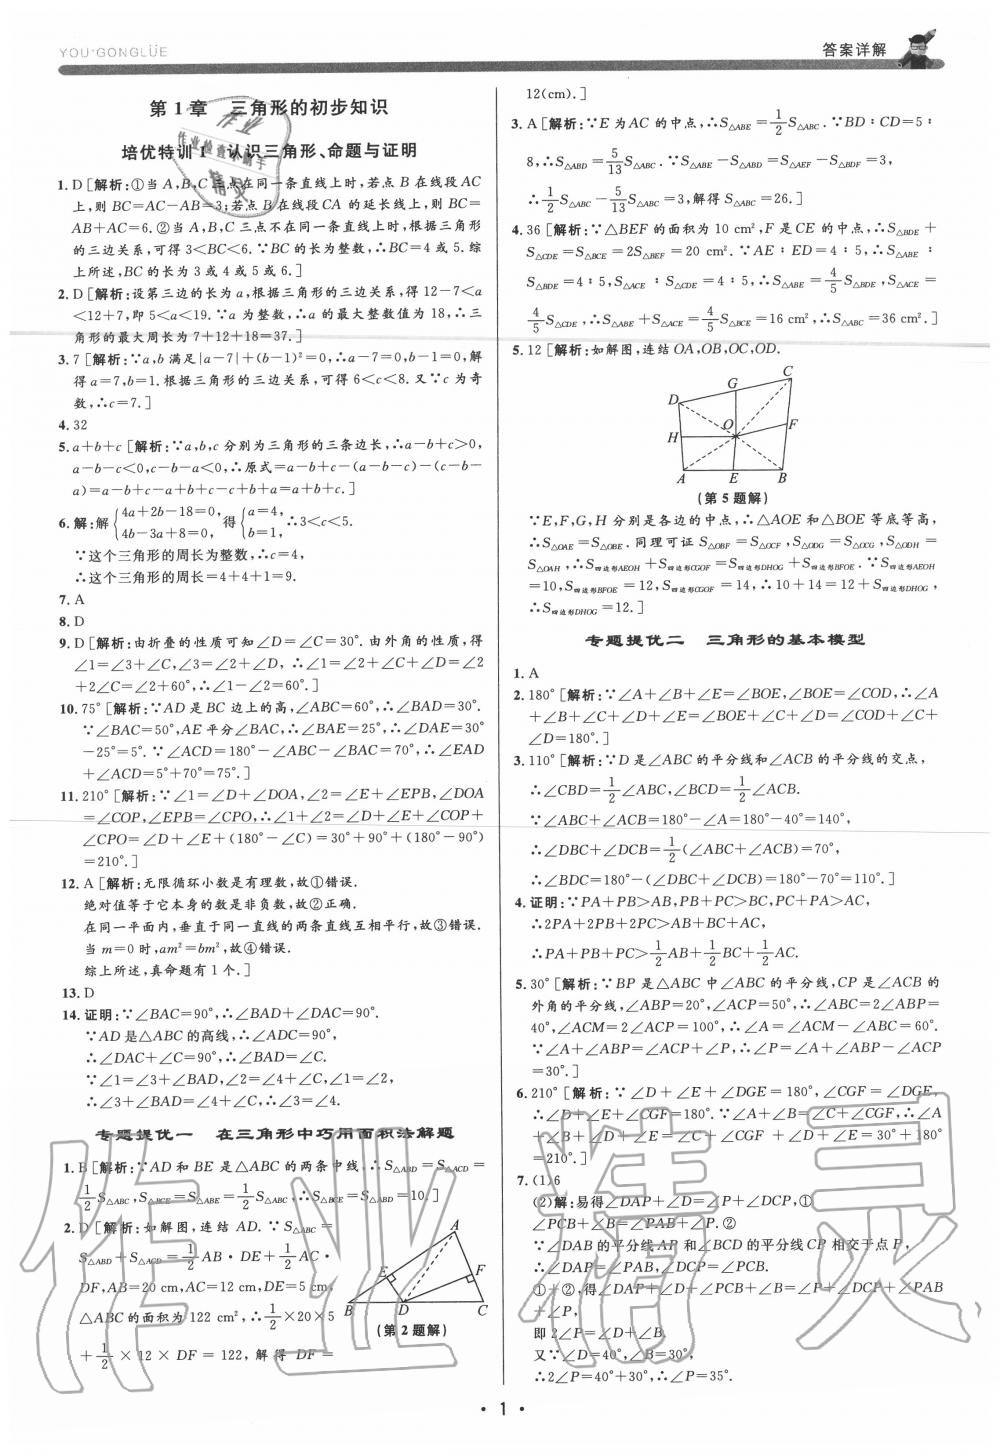 YOU+GONGLÜE
答案详解
第1章 三角形的初步知识
培优特训1 认识三角形、命题与证明
1. D [解析:①当 A,B,C三点在同一条直线上时,若点 B 在线段AC
上,则 BC=AC-AB=3;若点 B 在线段 CA 的延长线上,则 BC=
AB+AC=6. ②当 A,B,C 三点不在同一条直线上时,根据三角形
的三边关系,可得 3<BC<6. ∵BC 的长为整数,∴BC=4 或 5. 综
上所述,BC 的长为 3 或 4 或 5 或 6.]
2. D [解析:设第三边的长为 a,根据三角形的三边关系,得 12-7<a
<12+7,即 5<a<19. ∵a 为整数,∴a 的最大整数值为 18,∴三
角形的最大周长为 7+12+18=37.]
3. 7 [解析:∵a,b 满足|a-7|+(b-1)²=0,∴a-7=0,b-1=0,解
得 a=7,b=1. 根据三角形的三边关系,可得 6<c<8. 又∵c 为奇
数,∴c=7.]
4. 32
5. a+b+c [解析:∵a,b,c 分别为三角形的三条边长,∴a-b+c>0,
a-b-c<0,c-b-a<0,∴原式=a-b+c-(a-b-c)-(c-b-
a)=a-b+c-a+b+c-c+b+a=a+b+c.]
6. 解:解{4a+2b-18=0, 4b-3a+8=0, 得{a=4, b=1, ∴3<c<5.
∵这个三角形的周长为整数,∴c=4,
∴这个三角形的周长=4+4+1=9.
7. A
8. D
9. D [解析:由折叠的性质可知∠D=∠C=30°. 由外角的性质,得
∠1=∠3+∠C,∠3=∠2+∠D, ∴∠1=∠2+∠C+∠D=∠2
+2∠C=∠2+60°,∴∠1-∠2=60°.]
10. 75° [解析:∵AD 是 BC 边上的高,∠ABC=60°,∴∠BAD=30°.
∵∠BAC=50°,AE 平分∠BAC,∴∠BAE=25°,∴∠DAE=30°
-25°=5°. ∵∠ACD=180°-∠ABC-∠BAC=70°,∴∠EAD
+∠ACD=5°+70°=75°.]
11. 210° [解析:∵∠1=∠D+∠DOA,∠2=∠E+∠EPB,∠DOA
=∠COP,∠EPB=∠CPO,∴∠1+∠2=∠D+∠E+∠COP+
∠CPO=∠D+∠E+(180°-∠C)=30°+90°+(180°-90°)
=210°.]
12. A [解析:无限循环小数是有理数,故①错误.
绝对值等于它本身的数是非负数,故②正确.
在同一平面内,垂直于同一直线的两条直线互相平行,故③错误.
当 m=0 时,am²=bm²,故④错误.
综上所述,真命题有 1 个.]
13. D
14. 证明:∵∠BAC=90°,∴∠BAD+∠DAC=90°.
∵AD 是△ABC 的高线,∴∠ADC=90°,
∴∠DAC+∠C=90°,∴∠BAD=∠C.
∵∠1=∠3+∠BAD,∠2=∠4+∠C,∠1=∠2,
∴∠3+∠BAD=∠4+∠C,∴∠3=∠4.
专题提优一 在三角形中巧用面积法解题
1. B [解析:∵AD 和 BE 是△ABC 的两条中线,∴S△ABD=S△ACD=
1/2 S△ABC,S△BCE=S△ABE=1/2 S△ABC,∴S△BCE=S△ABD=10.]
2. D [解析:如解图,连结 AD. ∵S△ABC=
S△ABD+S△ACD=1/2 AB·DE+1/2 AC·
DF,AB=20 cm,AC=12 cm,DE=5 cm,
△ABC 的面积为 122 cm²,∴1/2×20×5
+1/2×12×DF=122,解得 DF=
A
E
F
B
D
C
(第 2 题解)
12(cm).]
3. A [解析:∵E 为 AC 的中点,∴S△ABE=1/2 S△ABC. ∵BD∶CD=5∶
8,∴S△ABD=5/13 S△ABC. ∵S△ABE-S△ABD=S△AEF-S△BDF=3,
∴1/2 S△ABC-5/13 S△ABC=3,解得 S△ABC=26.]
4. 36 [解析:∵△BEF 的面积为 10 cm²,F 是 CE 的中点,∴S△BDE+
S△CDE=S△BCE=2S△BEF=20 cm². ∵AE∶ED=4∶5,∴S△ABE∶
S△BDE=4∶5,S△ACE∶S△CDE=4∶5,∴S△ABE=4/5 S△BDE,S△ACE=
4/5 S△CDE,∴S△ABE+S△ACE=4/5 S△BCE=16 cm²,∴S△ABC=36 cm².]
5. 12 [解析:如解图,连结 OA,OB,OC,OD.
C
G
D
O
F
H
A
E
B
(第 5 题解)
∵E,F,G,H 分别是各边的中点,∴△AOE 和△BOE 等底等高,
∴S△OAE=S△OBE. 同理可证 S△OBF=S△OCF,S△ODG=S△OCG,S△ODH=
S△OAH,∴S四边形AEOH+S四边形CGOF=S四边形DHOG+S四边形BFOE. ∵S四边形AEOH
=10,S四边形BFOE=12,S四边形CGOF=14,∴10+14=12+S四边形DHOG,
∴S四边形DHOG=12.]
专题提优二 三角形的基本模型
1. A
2. 180° [解析:∵∠A+∠B+∠E=∠BOE,∠BOE=∠COD,∴∠A
+∠B+∠C+∠D+∠E=∠BOE+∠C+∠D=∠COD+∠C+
∠D=180°.]
3. 110° [解析:∵D 是∠ABC 的平分线和∠ACB 的平分线的交点,
∴∠CBD=1/2∠ABC,∠BCD=1/2∠ACB.
∵∠ABC+∠ACB=180°-∠A=180°-40°=140°,
∴∠DBC+∠DCB=1/2(∠ABC+∠ACB)=70°,
∴∠BDC=180°-(∠DBC+∠DCB)=180°-70°=110°.]
4. 证明:∵PA+PB>AB,PB+PC>BC,PC+PA>AC,
∴2PA+2PB+2PC>AB+BC+AC,
∴PA+PB+PC>1/2 AB+1/2 BC+1/2 AC.
5. 30° [解析:∵BP 是△ABC 中∠ABC 的平分线,CP 是∠ACB 的
外角的平分线,∠ABP=20°,∠ACP=50°,∴∠ABC=2∠ABP=
40°,∠ACM=2∠ACP=100°,∴∠A=∠ACM-∠ABC=60°.
∵∠A+∠ABP=∠ACP+∠P,∴∠P=∠A+∠ABP-∠ACP
=30°.]
6. 210° [解析:∵∠D+∠E+∠DGE=180°,∠CGF=∠DGE,
∴∠D+∠E+∠CGF=180°. ∵∠A+∠B=∠C+∠CGF,∴∠A
+∠B+∠D+∠E=∠C+∠CGF+∠D+∠E=30°+180°
=210°.]
7. (1)6
(2)解:易得∠DAP+∠D=∠P+∠DCP,①
∠PCB+∠B=∠PAB+∠P. ②
∵∠DAB 的平分线 AP 和∠BCD 的平分线 CP 相交于点 P,
∴∠DAP=∠PAB,∠DCP=∠PCB.
①+②,得∠DAP+∠D+∠PCB+∠B=∠P+∠DCP+∠PAB
+∠P,
即 2∠P=∠D+∠B.
又∵∠D=40°,∠B=30°,
∴2∠P=40°+30°,∴∠P=35°.
· 1 ·
作业
作业检查小助手
精灵
作业精灵